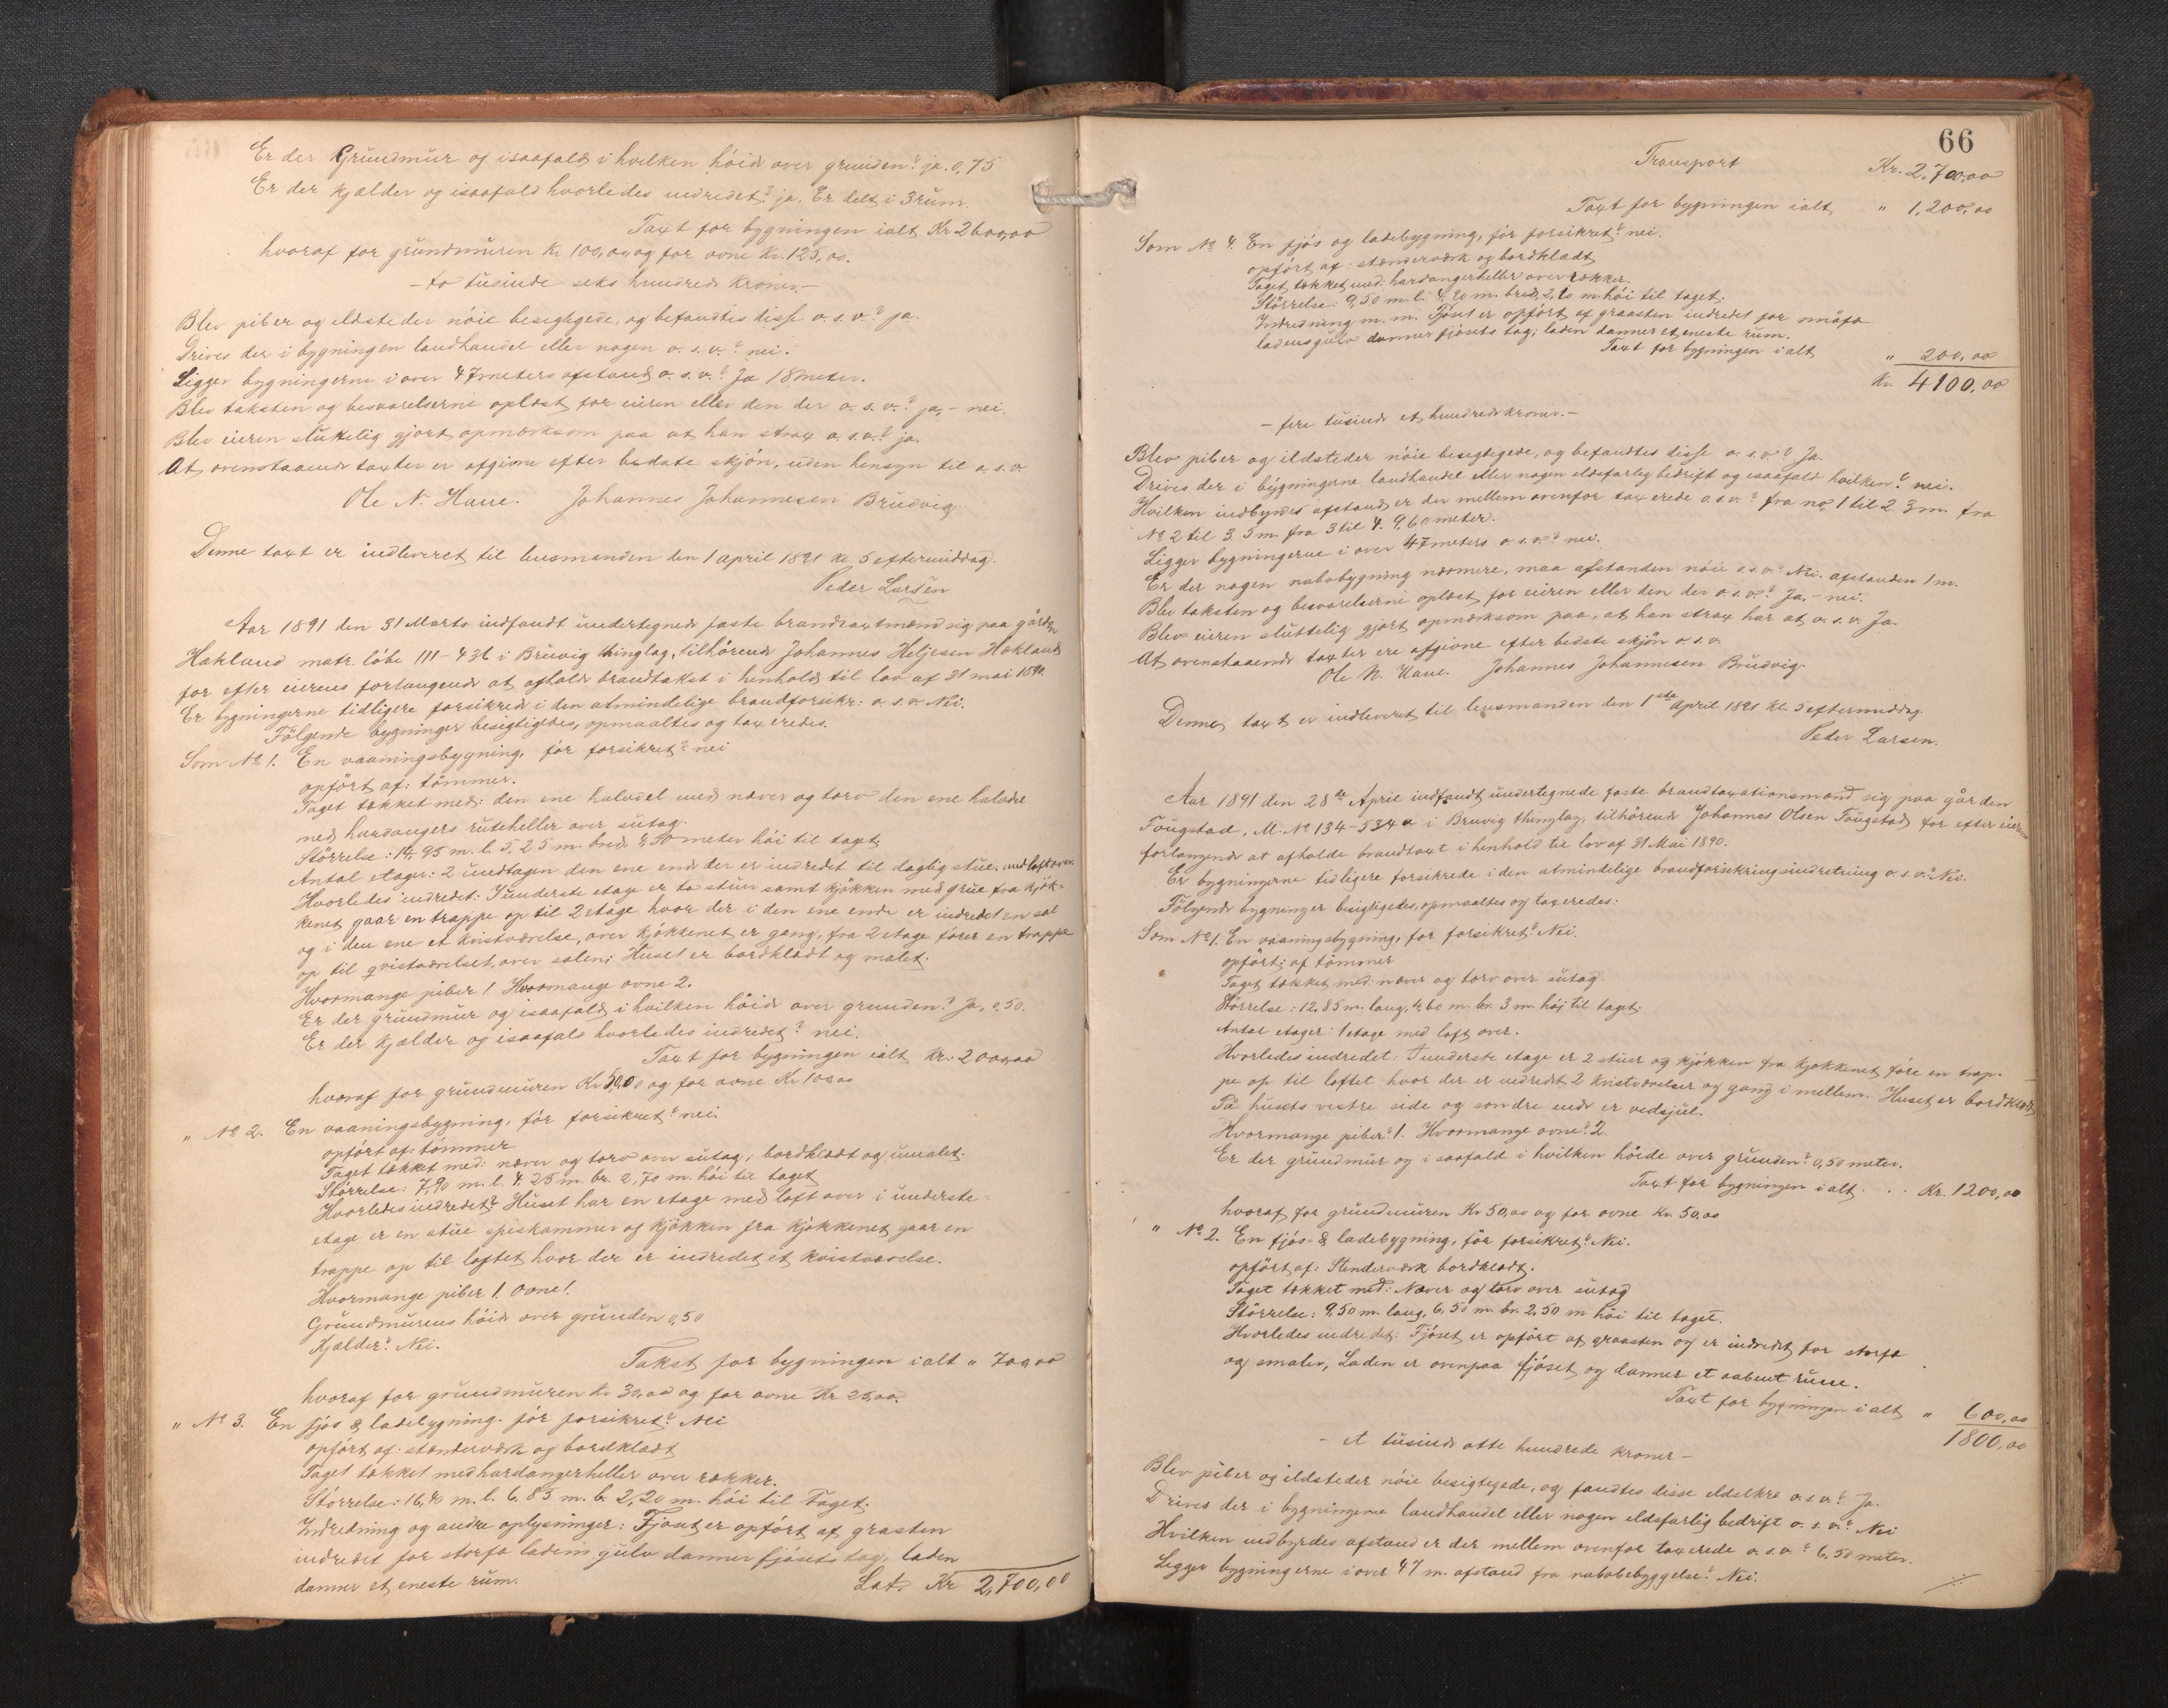 Er der Grundmur og isaafald i hvilken höide over grunden? ja. 0,75
Er der kjælder og isaafald hvorledes indredet? ja. Er delt i 3 rum.
Taxt for bygningen ialt Kr 2600,00
hvoraf for grundmuren Kr 100,00 og for ovne Kr. 125,00.
– to tusinde seks hundrede kroner –
Blev piber og ildsteder nöie besigtigede, og befandtes disse o. s. v.? ja.
Drives der i bygningen landhandel eller nogen o. s. v.? nei.
Ligger bygningerne i over 47 meters afstand o. s. v.? Ja 18 meter.
Blev taksten og besvarelserne oplæst for eieren eller den der o. s. v.? ja, – nei.
Blev eieren sluttelig gjort opmærksom paa at han strax o. s. v.? ja.
At ovenstaaende taxter er afgivne efter bedste skjön, uden hensyn til o. s. v
Ole N. Haue. Johannes Johannesen Brudvig.
Denne taxt er indleveret til lensmanden den 1 april 1891 kl. 5 eftermiddag.
Peder Larsen
Aar 1891 den 31 Marts indfandt undertegnede faste brandtaxtmænd sig paa gården
Hækland matr. löbe 111–436 i Bruvig thinglag, tilhörende Johannes Heljesen Hækland
for efter eierens forlangende at afholde brandtakst i henhold til lov af 31 mai 1890.
Er bygningerne tidligere forsikrede i den almindelige brandforsikr: o. s. v. Nei.
Fölgende bygninger besigtigedes, opmaaltes og taxeredes.
Som No 1. En vaaningsbygning, för forsikret? nei
opfört af: tömmer.
Taget tækket med: den ene halvdel med næver og torv den ene halvdel
med hardangers rudeheller over sutag.
Störrelse: 14,95 m. l. 5,25 m. bred, 4,50 meter höi til taget
Antal etager: 2 undtagen den ene ende der er indredet til daglig stue, med loft over.
Hvorledes indredet: I underste etage er to stuer samt kjökken med grue fra kjök-
kenet gaar en trappe op til 2 etage hvor der i den ene ende er indredet en sal
og i den ene et kvistværelse, over kjökkenet er gang, fra 2 etage förer en trappe
op til qvistværelset, over salen; Huset er bordklædt og malet.
Hvormange piber 1 Hvormange ovne 2.
Er der grundmur og isaafald i hvilken höide over grunden? Ja, 0,50.
Er der kjælder og isaafald hvorledes indredet? nei.
Taxt for bygningen ialt Kr: 2000,00
hvoraf for grundmuren Kr 50,00 og for ovne Kr 100,00
" No 2. En vaaningsbygning, för forsikret? nei.
opfört af: tömmer
Taget tækket med: næver og torv over sutag; bordklædt og umalet.
Störrelse: 7,90 m. l. 4,25 m. br. 2,70 m. höi til taget
Hvorledes indredet? Huset har en etage med loft over i underste
etage er en stue spiskammer og kjökken fra kjökkenet gaar en
trappe op til loftet hvor der er indredet et kvistværelse.
Hvormange piber 1. Ovne 1.
Grundmurens höide over grunden 0,50
Kjælder? Nei.
Takst for bygningen ialt " 700,00
hvoraf for grundmuren Kr 30,00 og for ovne Kr 25,00.
" No 3. En fjös & ladebygning. för forsikret? Nei
opfört af: stænderværk og bordklædt
Taget tækket med hardangerheller over rækker.
Störrelse: 16,40 m. l. 6,85 m. b. 2,20 m. höi til Taget.
Indredning og andre oplysninger: Fjöset er opfört af grasten
indredet for storfæ ladens gulv danner fjösets tag, laden
danner et eneste rum.
Lat. Kr 2,700,00
66
Transport Kr. 2,700,00
Taxt for bygningen ialt " 1,200,00
Som No 4. En fjös og ladebygning, för forsikret? nei.
opfört af: stænderværk og bordklædt
Taget tækket med: hardangerheller over rækker.
Störrelse: 9,50 m. l. 4,20 m. bred, 2,10 m. höi til taget.
Indredning m. m. Fjöset er opfört af graasten indredet for småfæ
ladens gulv danner fjösets tag; laden danner et eneste rum.
Taxt for bygningen ialt " 200,00
Kr. 4100,00
– fire tusinde et hundrede kroner. –
Blev piber og ildsteder nöie besigtigede, og befandtes disse o. s. v.? Ja.
Drives der i bygningerne landhandel eller nogen ildsfarlig bedrift og isaafald hvilken? nei.
Hvilken indbyrdes afstand er der mellem ovenfor taxerede o. s. v.? fra no 1 til 2. 3 m. fra
No 2 til 3. 5 m. fra 3 til 4. 9,60 meter.
Ligger bygningerne i over 47 meters o. s. v.? nei.
Er der nogen nabobygning nærmere, maa afstanden nöie o. s. v. Nei. afstanden 1 m.
Blev taksten og besvarelserne oplæst for eieren eller den der o. s. v.? Ja, – nei.
Blev eieren sluttelig gjort opmærksom paa, at han strax har at o. s. v. Ja.
At ovenstaaende taxter ere afgivne efter bedste skjön o. s. v.
Ole N. Haue. Johannes Johannesen Brudvig.
Denne taxt er indleveret til lensmanden den 1ste April 1891 kl. 5 eftermiddag
Peder Larsen.
Aar 1891 den 28de April indfandt undertegnede faste brandtaxationsmænd sig paa gården
Fougstad, M. No 134–534a i Bruvig thinglag, tilhörende Johannes Olsen Fougstad for efter eierens
forlangende at afholde brandtaxt i henhold til lov af 31 Mai 1890.
Er bygningerne tidligere forsikrede i den almindelige brandforsikringsindretning o. s. v.? Nei.
Fölgende bygninger besigtigedes, opmaaltes og taxeredes:
Som No 1. En vaaningsbygning, för forsikret? Nei.
opfört: af tömmer
Taget tækket med: næver og torv over sutag.
Störrelse: 12,85 m. lang, 4,60 m. br. 3 m. höj til taget.
Antal etager: 1 etage med loft over.
Hvorledes indredet: I underste etage er 2 stuer og kjökken fra kjøkkenet före en trap-
pe op til loftet hvor der er indredet 2 kvistværelser og gang i mellem. Huset er bordklædt
På husets vestre side og söndre ende er vedsjul.
Hvormange piber? 1. Hvormange ovne? 2.
Er der grundmur og isaafald i hvilken höide over grunden? 0,50 meter.
Taxt for bygningen ialt . . Kr. 1200,00
hvoraf for grundmuren Kr 50,00 og for ovne Kr. 50,00
" No 2. En fjös- & ladebygning, för forsikret? Nei.
opfört af: Stenderværk bordklædt.
Taget tækket med: Næver og torv over sutag
Störrelse: 9,50 m. lang, 6,50 m. br. 2,50 m höi til taget.
Hvorledes indredet: Fjöset er opfört af graasten og er indredet for storfæ
og smalev, Laden er ovenpaa fjöset og danner et aabent rum.
Taxt for bygningen ialt " 600,00
1800,00
– et tusinde otte hundrede kroner –
Blev piber og ildsteder nöie besigtigede, og fandtes disse ildsikre o. s. v.? Ja.
Drives der i bygningerne landhandel eller nogen ildsfarlig bedrift o. s. v.? Nei
Hvilken indbyrdes afstand er der mellem ovenfor taxerede o. s. v.? 6,50 meter.
Ligger bygningerne i over 47 m. afstand fra nabobebyggelse? Nei.